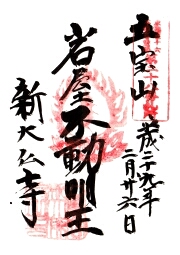 五宝山
平成二十九年
二月廿六日
岩屋不動明王
新大仏寺